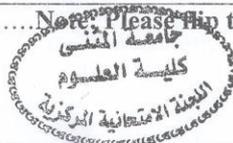 .....Note: Please flip t
جامعة المثنى
كلية العلوم
اللجنة الامتحانية المركزية